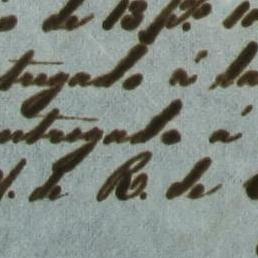 de 13 p%
tregado á la
entregado á
de R. de